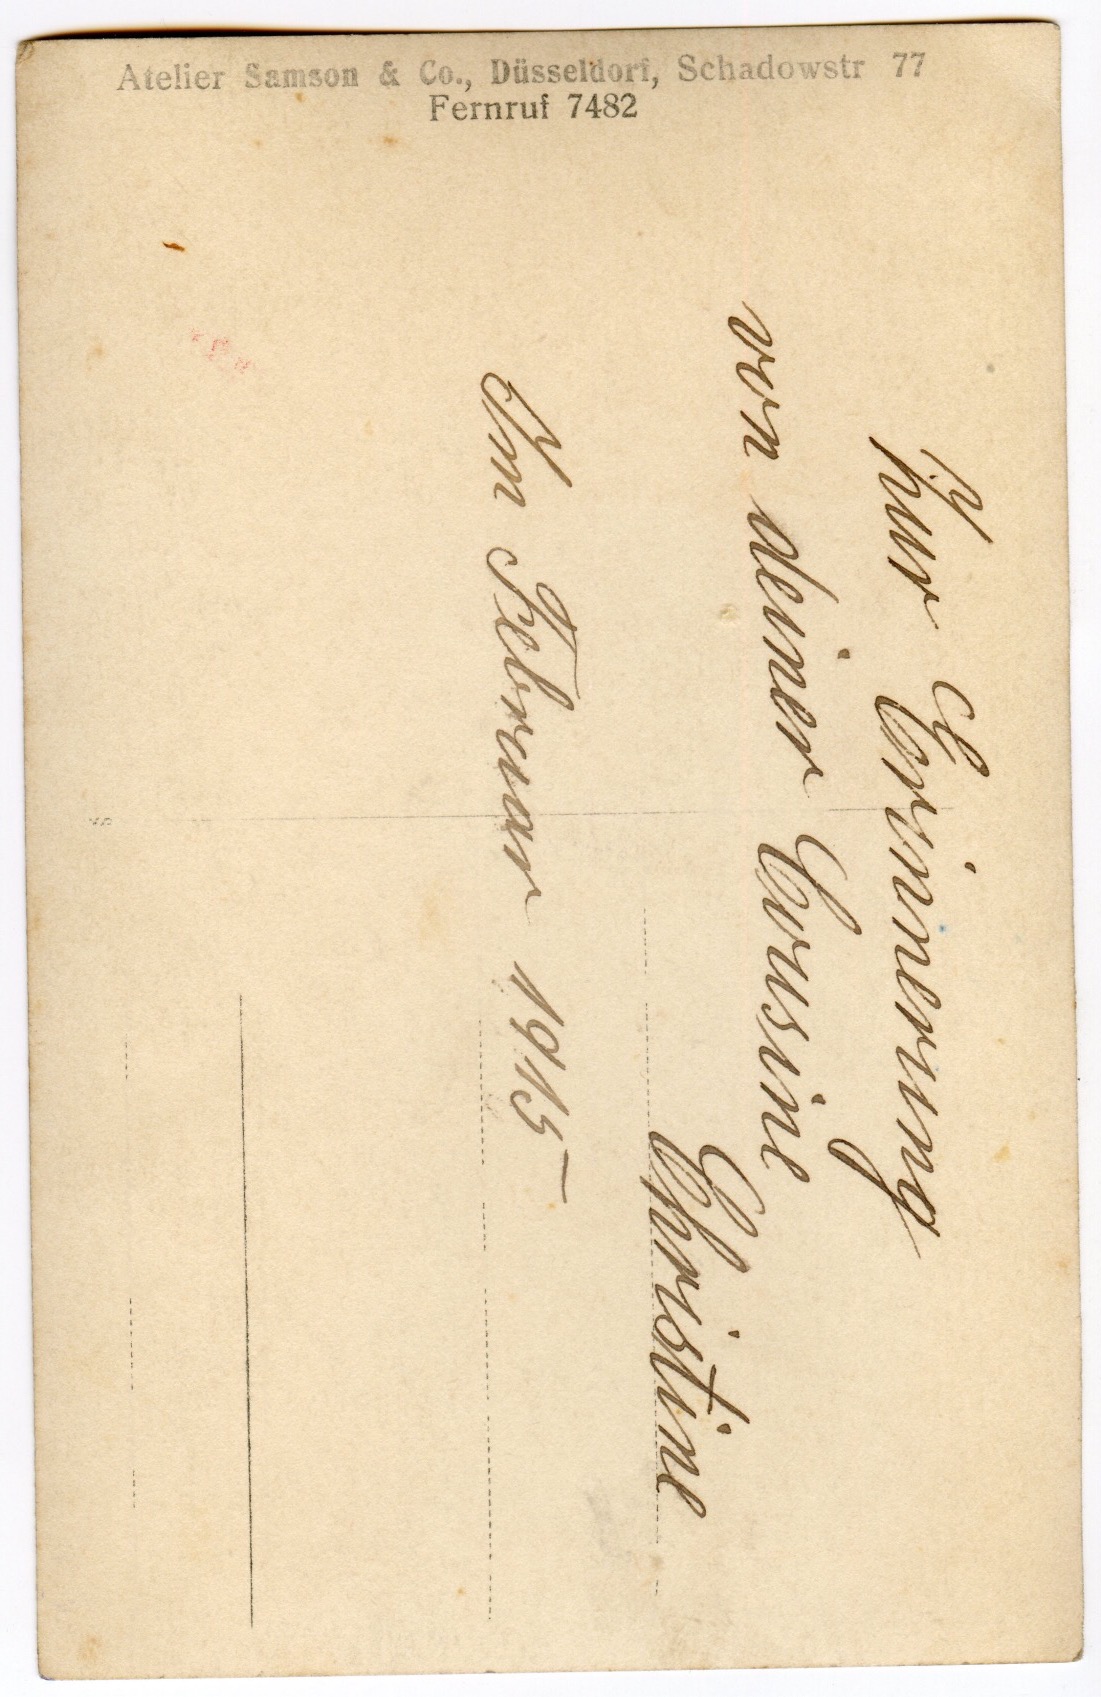 Atelier Samson & Co., Düsseldorf, Schadowstr 77
Fernruf 7482
Zur Erinnerung
von deiner Cousine
Christine
Im Februar 1915